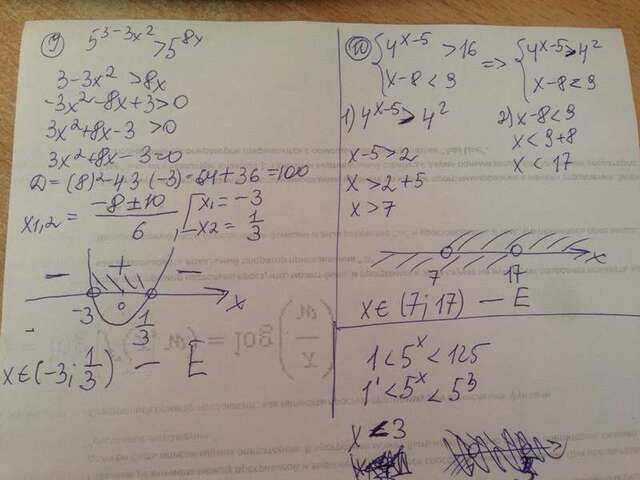 9) 5^{3-3x^2} > 5^{8x}
3-3x^2 > 8x
-3x^2-8x+3>0
3x^2+8x-3 >0
3x^2+8x-3=0
D=(8)^2-4·3·(-3)=64+36=100
x_{1,2} = \frac{-8±10}{6}, [x_1=-3
x_2=\frac{1}{3}
- + -
-3 0 \frac{1}{3} x
x∈(-3; \frac{1}{3}) - E
10) {4^{x-5} > 16 => {4^{x-5} > 4^2
x-8<9 x-8<9
1) 4^{x-5} > 4^2
x-5>2
x>2+5
x>7
2) x-8<9
x<9+8
x<17
7 17 x
x∈(7; 17) - E
1<5^x<125
1^1<5^x<5^3
x<3